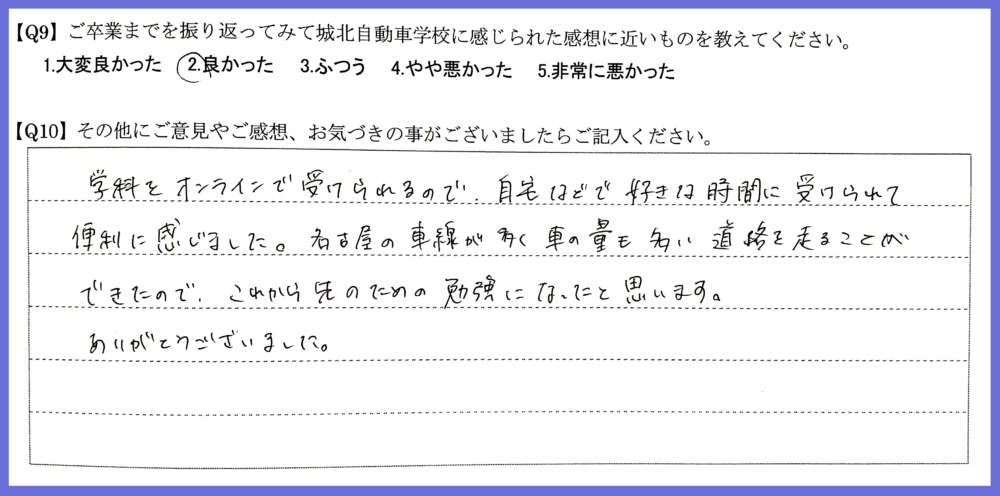 【Q9】ご卒業までを振り返ってみて城北自動車学校に感じられた感想に近いものを教えてください。
1.大変良かった 2.良かった 3.ふつう 4.やや悪かった 5.非常に悪かった
【Q10】その他にご意見やご感想、お気づきの事がございましたらご記入ください。
学科をオンラインで受けられるので、自宅などで好きな時間に受けられて
便利に感じました。名古屋の車線が多く車の量も多い道路を走ることが
できたので、これから先のための勉強になったと思います。
ありがとうございました。